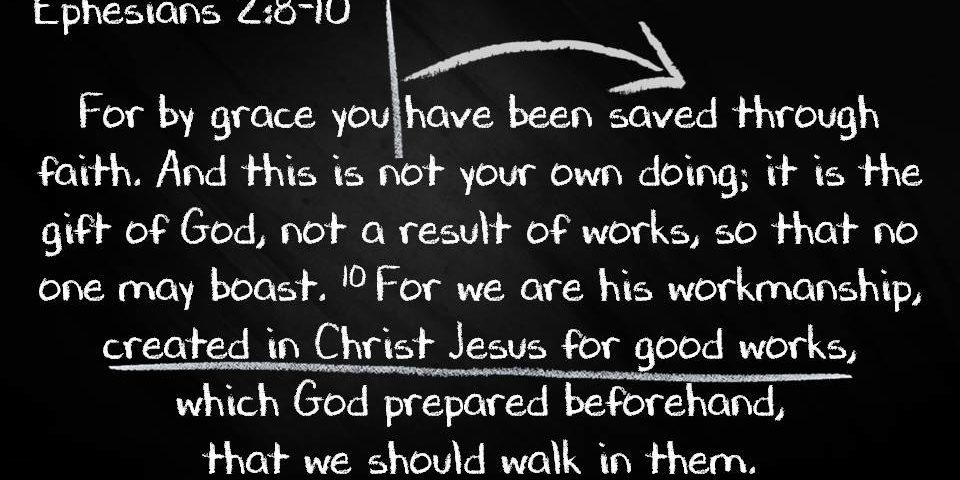 Ephesians 2:8-10
For by grace you have been saved through
faith. And this is not your own doing; it is the
gift of God, not a result of works, so that no
one may boast. 10 For we are his workmanship,
created in Christ Jesus for good works,
which God prepared beforehand,
that we should walk in them.